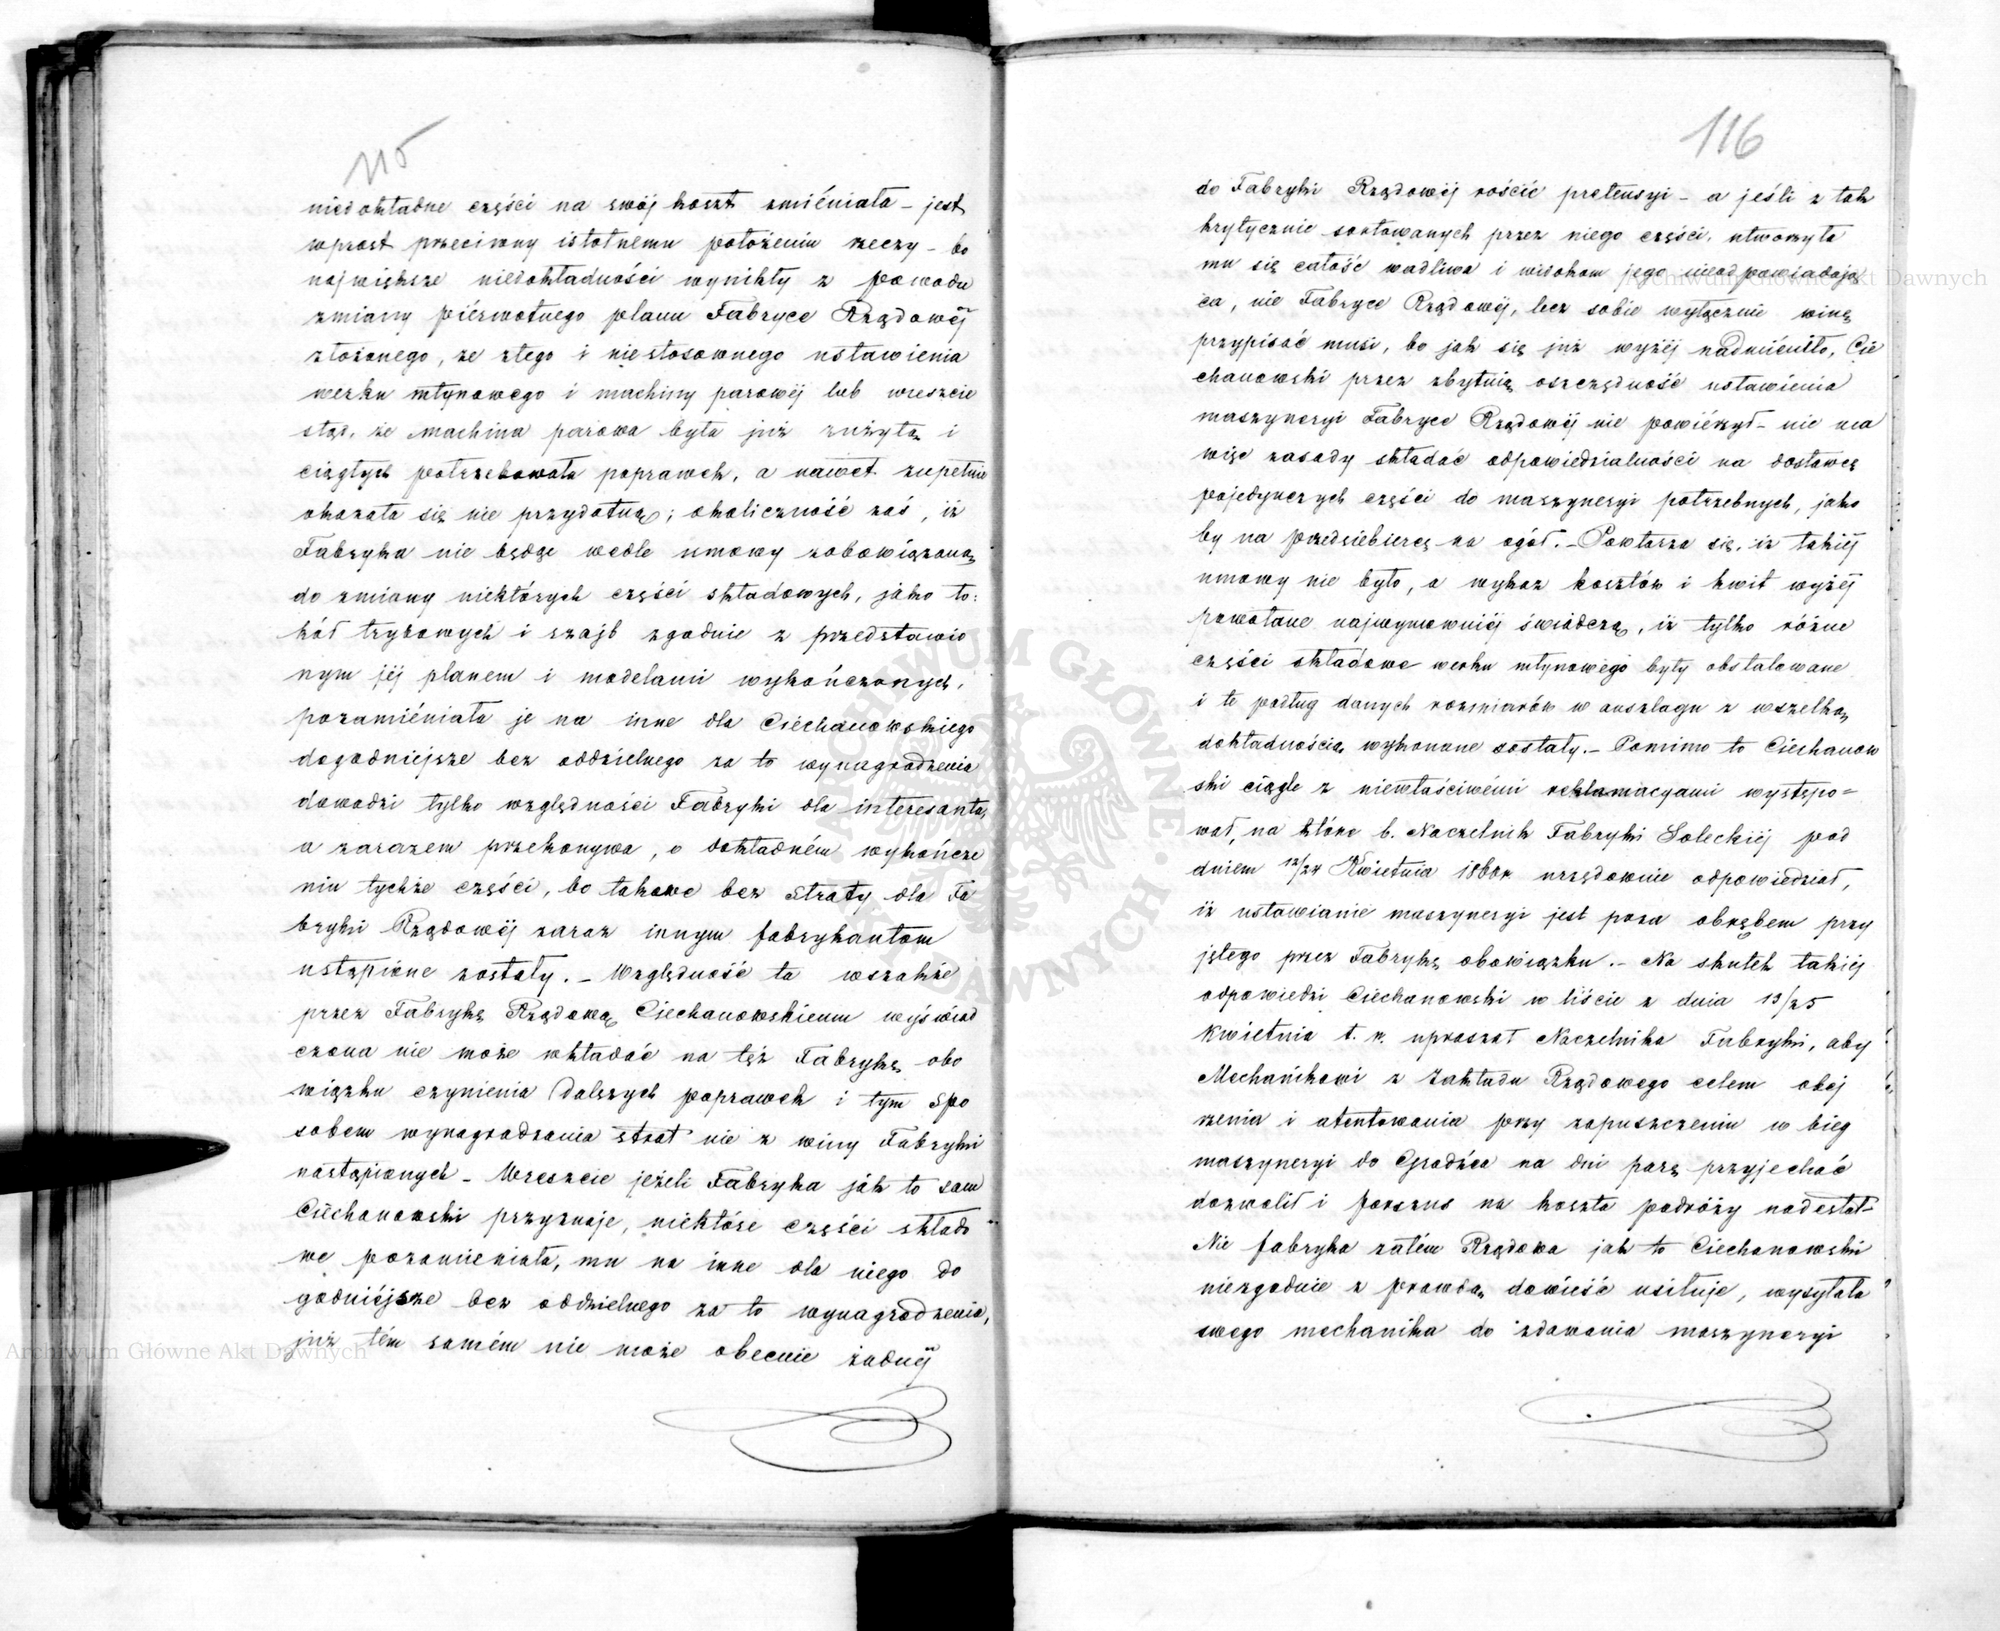 115
niedokładne części na swój koszt zmiéniała – jest
wprost przeciwny istotnemu położeniu rzeczy – bo
największe niedokładności wynikły z powodu
zmiany piérwotnego planu Fabryce Rządowéj
złożonego, ze złego i niestosownego ustawienia
werku młynowego i machiny parowéj lub wreszcie
stąd, że machina parowa była już zużytą i
ciągłych potrzebowała poprawek, a nawet zupełnie
okazała się nie przydatną; okoliczność zaś, iż
Fabryka nie będąc wedle umowy zobowiązaną
do zmiany niektórych części składowych, jako to:
kół trybowych i szajb zgodnie z przedstawio
nym jéj planem i modelami wykończonych,
pozamiéniała je na inne dla Ciechanowskiego
dogodniejsze bez oddzielnego za to wynagrodzenia
dowodzi tylko względności Fabryki dla interesanta,
a zarazem przekonywa, o dokładném wykończe
niu tychże części, bo takowe bez straty dla Fa
bryki Rządowéj zaraz innym fabrykantom
ustąpione zostały. – Względność ta wszakże
przez Fabrykę Rządową Ciechanowskiemu wyświad
czona nie może wkładać na tęż Fabrykę obo
wiązku czynienia dalszych poprawek i tym spo
sobem wynagradzania strat nie z winy Fabryki
nastąpionych – Wreszcie jeżeli Fabryka jak to sam
Ciechanowski przyznaje, niektóre części składo
we pozamieniała, mu na inne dla niego do
godniéjsze bez oddzielnego za to wynagrodzenia,
już tém samém nie może obecnie żadnéj
116
do Fabryki Rządowéj rościć pretensyi – a jeśli z tak
krytycznie sortowanych przez niego części, utworzyła
mu się całość wadliwa i widokom jego nieodpowiadają
ca, nie Fabryce Rządowéj, lecz sobie wyłącznie winę
przypisać musi, bo jak się już wyżéj nadmiéniło, Cie
chanowski przez zbytnią oszczędność ustawienia
maszyneryi Fabryce Rządowéj nie powiérzył – nie ma
więc zasady składać odpowiedzialności na dostawcę
pojedynczych części do maszyneryi potrzebnych, jako
by na przedsiebiercę na ogół. – Powtarza się, iż takiéj
umowy nie było, a wykaz kosztów i kwit wyżéj
powołane najwymowniéj świadczą, iż tylko różne
części składowe werku młynowego były obstalowane
i te podług danych rozmiarów w anszlagu z wszelką
dokładnością wykonane zostały. – Pomimo to Ciechanow
ski ciągle z niewłaściwémi reklamacyami występo=
wał, na które b. Naczelnik Fabryki Soleckiéj pod
dniem 12/24 Kwietnia 1860 r. urzędownie odpowiedział,
iż ustawianie maszyneryi jest poza obrębem przy
jętego przez Fabrykę obowiązku. – Na skutek takiéj
odpowiedzi Ciechanowski w liście z dnia 13/25
Kwietnia t. r. upraszał Naczelnika Fabryki, aby
Mechanikowi z Zakładu Rządowego celem obej
rzenia i atentowania przy zapuszczeniu w bieg
maszyneryi do Grodźca na dni parę przyjechać
dozwolił i forszus na koszta podróży nadesłał –
Nie fabryka zatém Rządowa jak to Ciechanowski
niezgodnie z prawdą dowieść usiłuje, wysyłała
swego mechanika do zdawania maszyneryi
Archiwum Główne Akt Dawnych
Archiwum Główne Akt Dawnych
ARCHIWUM GŁÓWNE AKT DAWNYCH